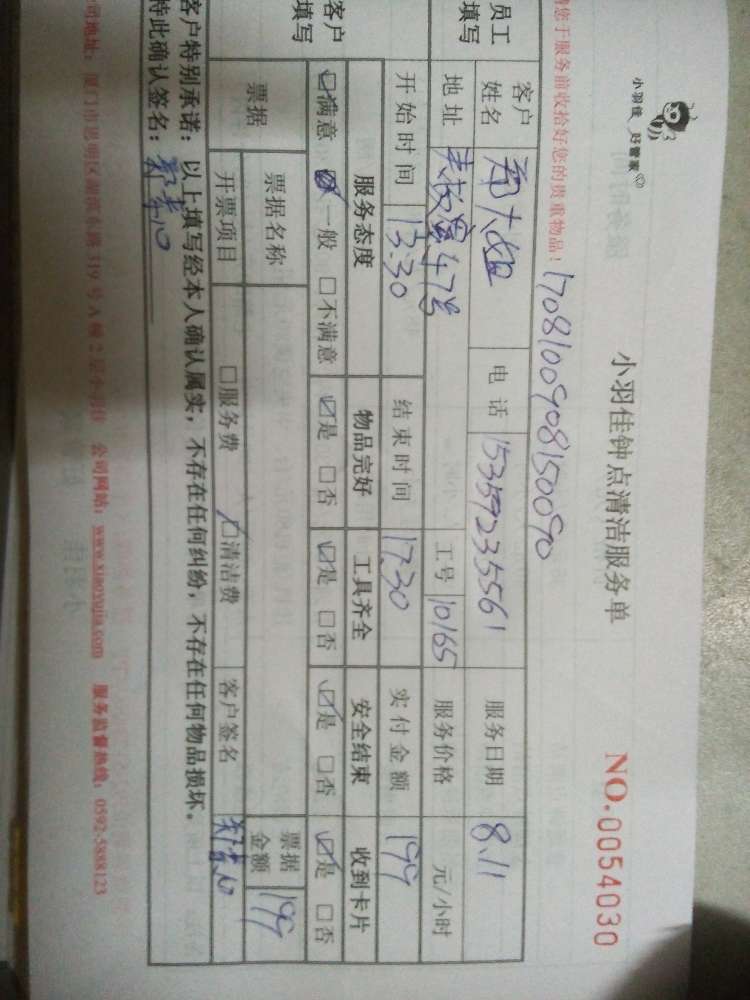 小羽佳 好管家
小羽佳钟点清洁服务单
NO.0054030
于服务前收拾好您的贵重物品！
1708100908150090
员工
填写
客户
姓名
大姐
电话
15359235561
服务日期
8.11
地址
47号
工号
10165
服务价格
元/小时
开始时间
13:30
结束时间
17:30
实付金额
199
客户
填写
服务态度
物品完好
工具齐全
安全结束
收到卡片
☑满意 ☑一般 □不满意
☑是 □否
☑是 □否
☑是 □否
☑是 □否
票据
票据名称
票据
金额
199
开票项目
□服务费
☑清洁费
客户签名
客户特别承诺：以上填写经本人确认属实，不存在任何纠纷，不存在任何物品损坏。
特此确认签名：
司地址：厦门市思明区湖滨东路319号A幢2层小羽佳 公司网站：www.xiaoyujia.com 服务监督热线：0592-5888123